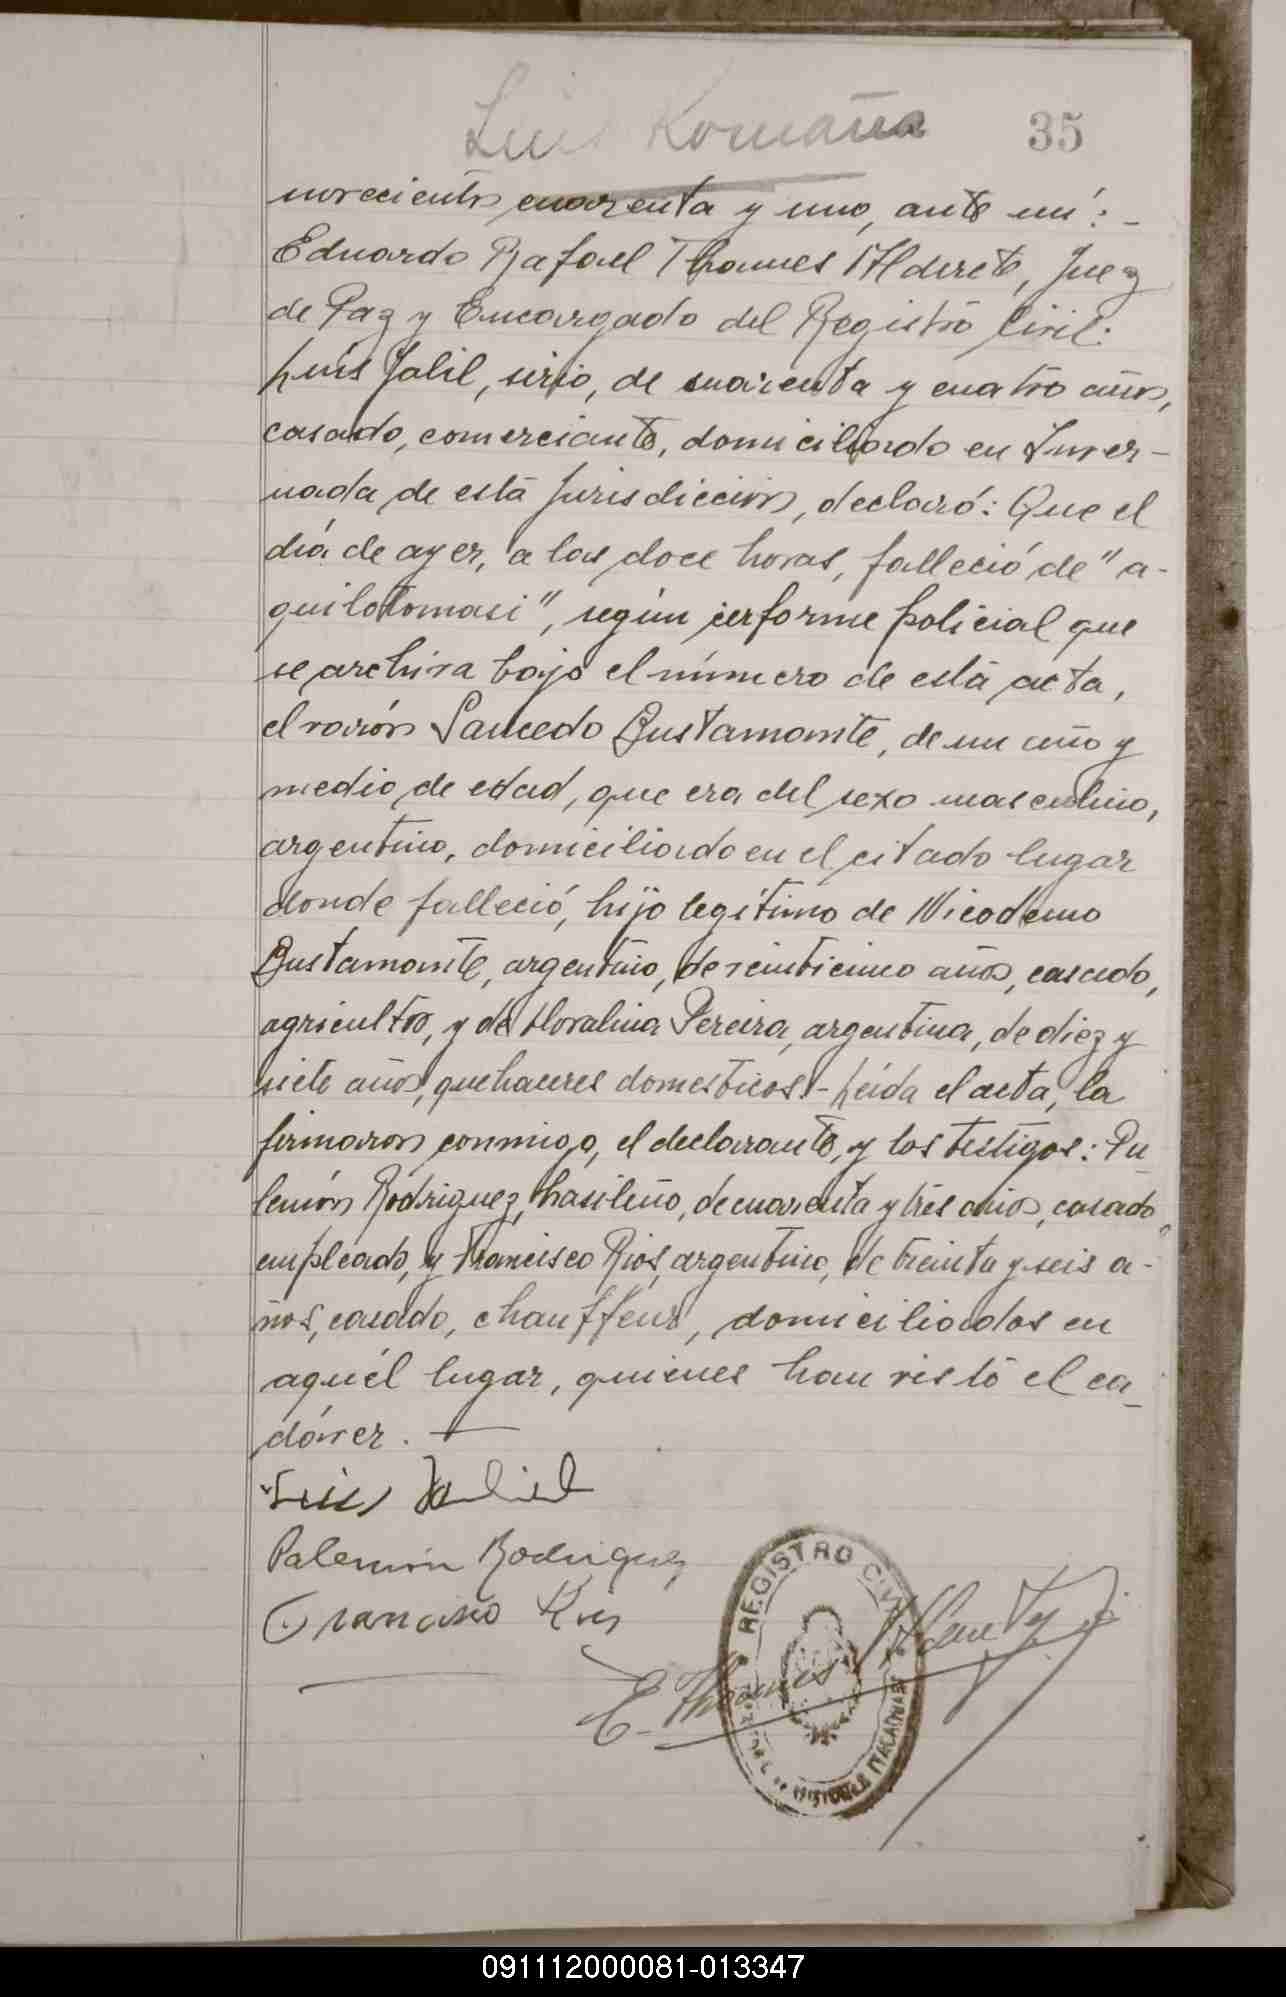 Luis Romaña
35
novecientos cuarenta y uno, ante mí: -
Eduardo Rafael Thames Alderete, Juez
de Paz y Encargado del Registro Civil:
Luis Jalil, sirio, de cuarenta y cuatro años,
casado, comerciante, domiciliado en Inver-
nada de esta Jurisdicción, declaró: Que el
día de ayer, a las doce horas, falleció de "a-
quilotomasi", según informe policial que
se archiva bajo el número de esta acta,
el varón Saucedo Bustamante, de un año y
medio de edad, que era del sexo masculino,
argentino, domiciliado en el citado lugar
donde falleció, hijo legítimo de Nicodemo
Bustamante, argentino, de veinticinco años, casado,
agricultor, y de Floralina Pereira, argentina, de diez y
siete años, quehaceres domesticos.- Leída el acta, la
firmaron conmigo, el declarante, y los testigos: Pa-
lemón Rodriguez, brasileño, de cuarenta y tres años, casado,
empleado, y Francisco Rios, argentino, de treinta y seis a-
ños, casado, chauffeur, domiciliados en
aquél lugar, quienes han visto el ca-
dáver. —
Luis Jalil
Palemón Rodriguez
Francisco Rios
E. Thames Alderete
REGISTRO CIVIL
091112000081-013347